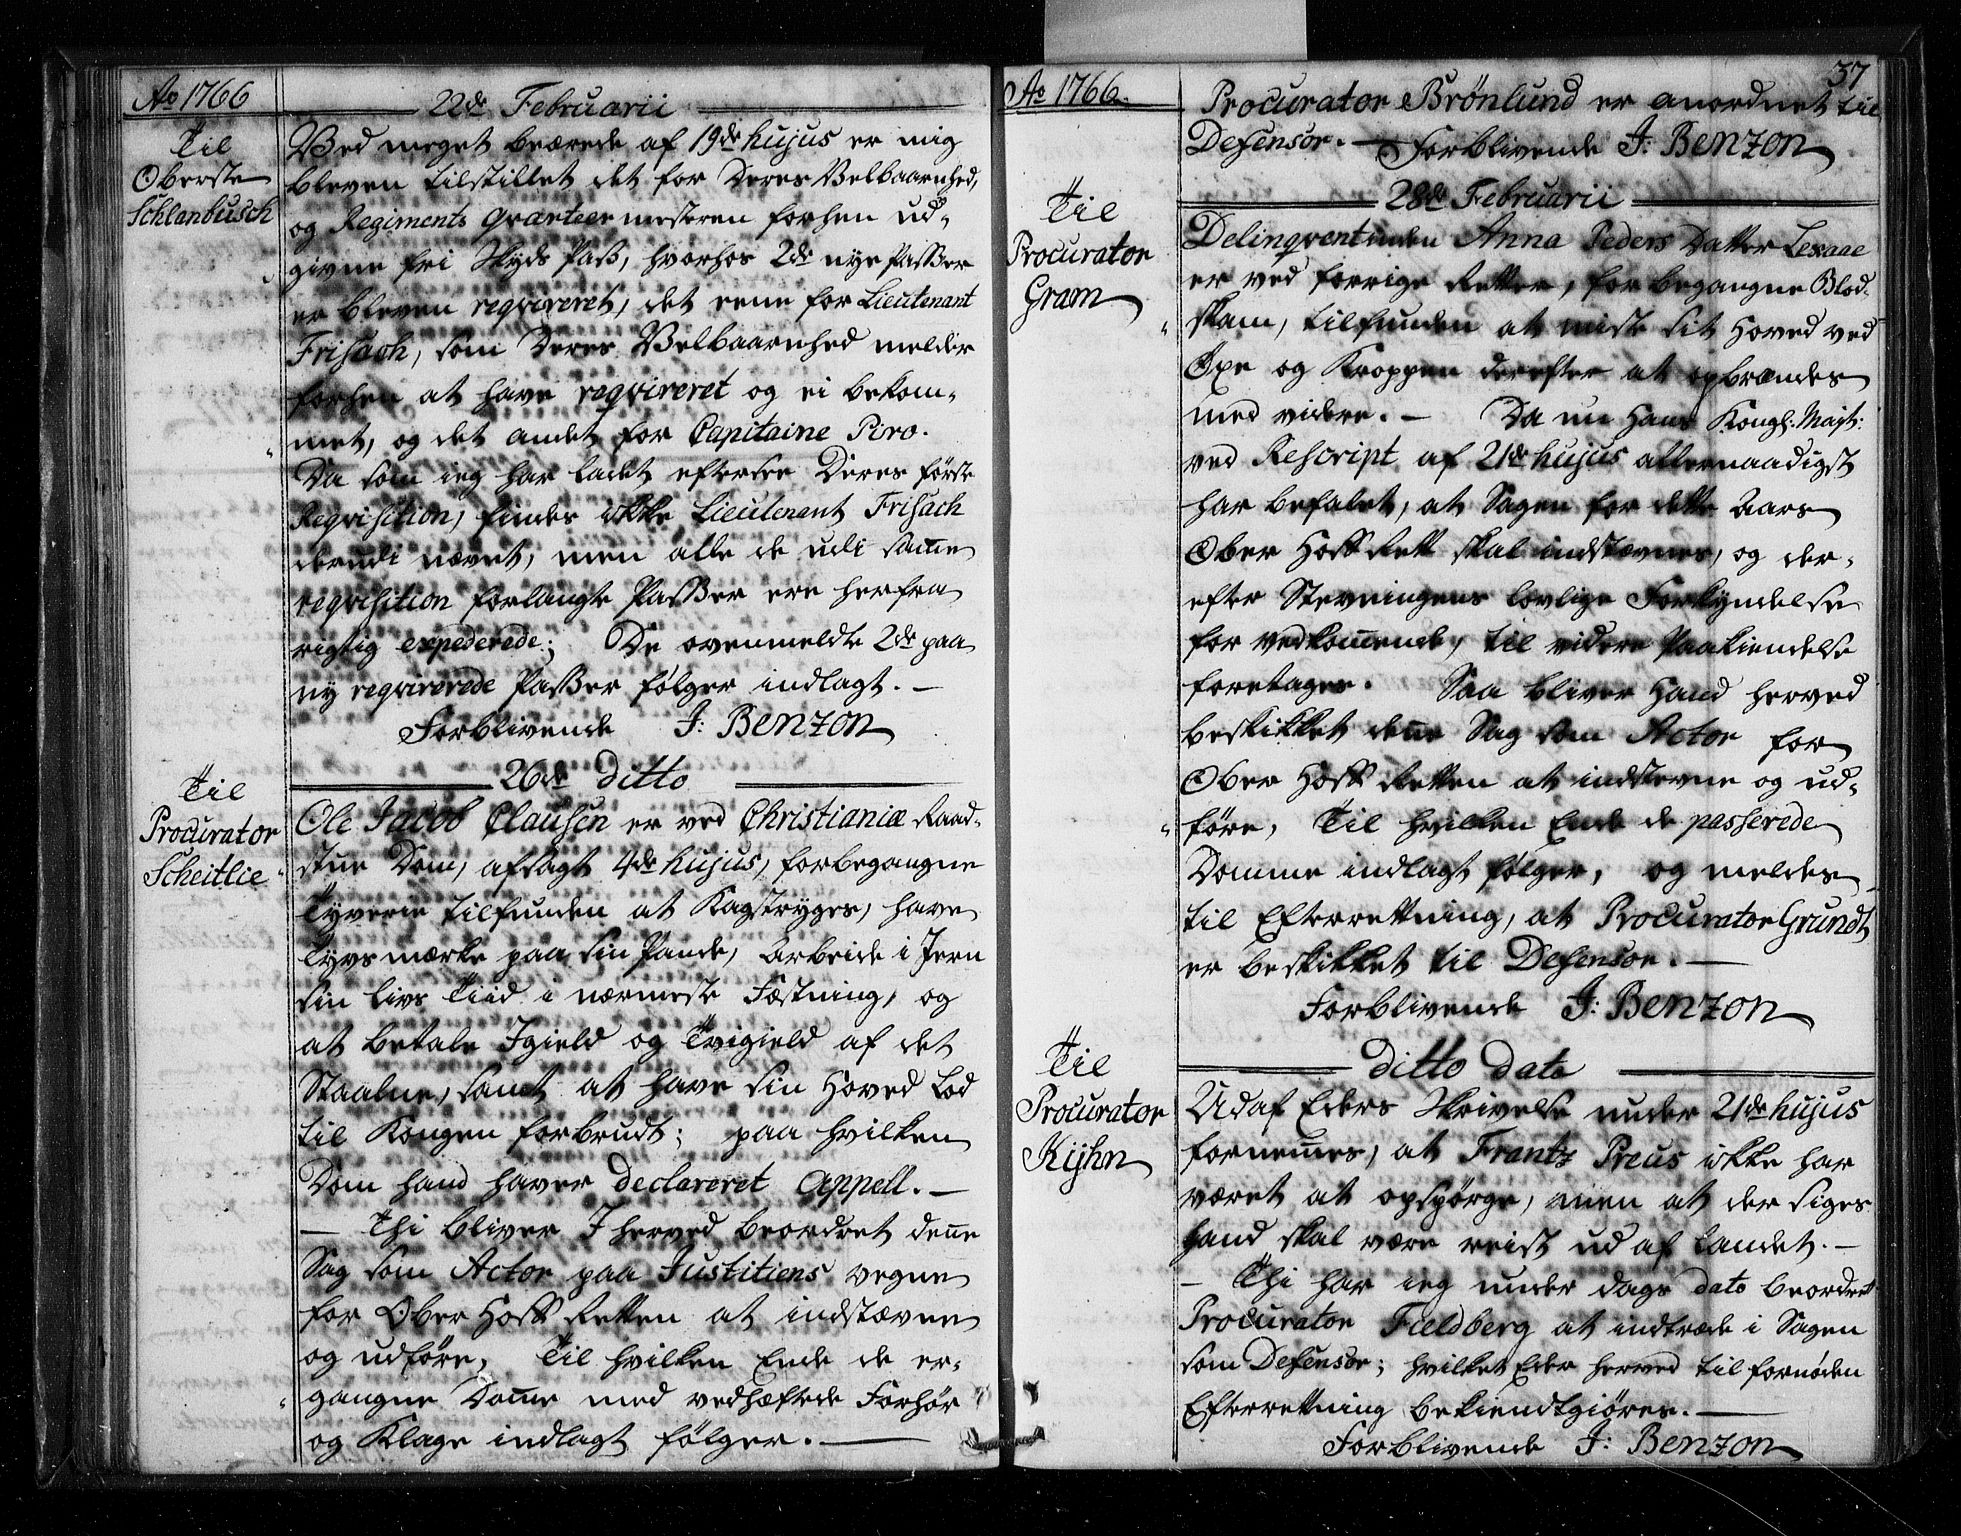 Ao 1766
22de Februarii
Til
Oberste
Schlanbusch
Med meget beærede af 19de hujus er mig
bleven tilstillet det for Deres Velbaarnhed,
og Regiments Qvarteer mesteren forhen ud-
givne fri Skyds Pass, hvorhos 2de nye Passer
er bleven reqvireret, det eene for Lieutenant
Frisach, som Deres Velbaarnhed melder
forhen at have reqvireret og ei bekom-
met, og det andet for Capitaine Piro.
Da som ieg har ladet eftersee Deres første
Reqvisition, findes ikke Lieutenant Frisach
derudi nævnt, men alle de udi samme
reqvisition forlangte Passer ere herfra
rigtig expederede; De ovenmeldte 2de paa
ny reqvirerede Passer følger indlagt. –
Forblivende J: Benzon
26de ditto
Til
Procurator
Scheitlie
Ole Jacob Clausen er ved Christianiæ Raad-
stue Dom, afsagt 4de hujus, for begangne
Tyverie tilfunden at Kagstryges, have
Tyvs mærke paa sin Pande, Arbeide i Jern
sin Livs Tiid i nærmeste Fæstning, og
at betale Igield og Tvigield af det
Staalne, samt at have sin Hoved Lod
til Kongen forbrudt; paa hvilken
Dom hand haver declareret Appell. –
– Thi bliver I herved beordret denne
Sag som Actor paa Justitiens vegne
for Ober Hoff Retten at indstævne
og udføre, Til hvilken Ende de er-
gangne Domme med vedhæftede Forhør
og Klage indlagt følger. –
Ao 1766.
37
Procurator Brönlund er anordnet til
Defensor. – Forblivende J: Benzon
28de Februarii
Til
Procurator
Gram
Delinqventinden Anna Peders Datter Lexaae
er ved forrige Retter, for begangne Blod-
skam, tilfunden at miste sit Hoved ved
Øxe og Kroppen derefter at opbrændes
med videre. – Da nu Hans Kongl: Mayt:
ved Rescript af 21de hujus allernaadigst
har befalet, at Sagen for dette Aars
Ober Hoff Rett skal indstævnes, og der-
efter Stevningens lovlige Forkyndelse
for vedkommende, til videre Paakiendelse
foretages. Saa bliver Hand herved
beskikket denne Sag som Actor for
Ober Hoff Retten at indstevne og ud-
føre, Til hvilken Ende de passerede
Domme indlagt følger, og meldes
til Efterretning, at Procurator Grundt
er beskikket til Defensor. –
Forblivende J: Benzon
ditto dato
Til
Procurator
Kijhn
Udaf Eders Skrivelse under 21de hujus
fornemmes, at Frantz Preus ikke har
været at opspørge, men at der siges
hand skal være reist ud af Landet. –
– Thi har ieg under dags dato beordret
Procurator Fieldberg at indtræde i Sagen
som Defensor; hvilket Eder herved til fornøden
Efterretning bekiendtgiøres. –
Forblivende J: Benzon